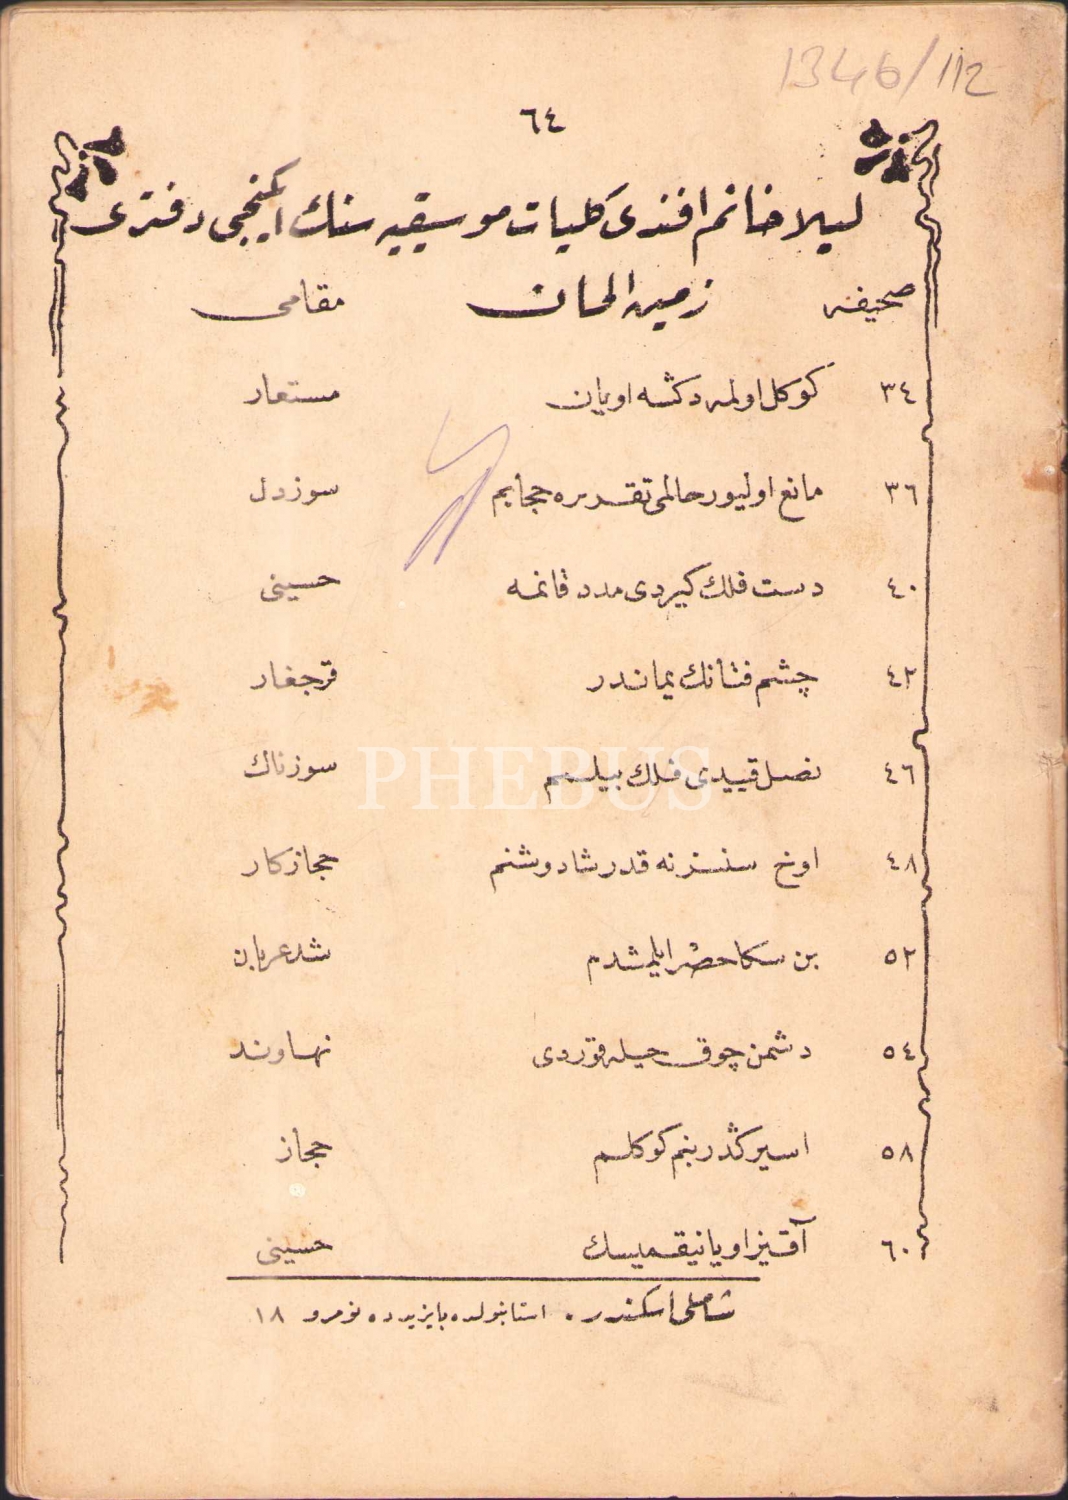 1346/112
٦٤
ليلا خانم افندى كليات موسيقيه سنك ايكنجى دفترى
صحيفه زمين الحان مقامى
٣٤ كوكل اولمه دكشه اويان مستعار
٣٦ مانع اوليور حالمى تقديره حجابم سوزدل
٤٠ دست فلك كيردى مدد قانمه حسينى
٤٢ چشم فتانك يماندر قرجغار
٤٦ نصل قييدى فلك بيلسم سوزناك
٤٨ اوخ سنسز نه قدر شاد وشنم حجازكار
٥٢ بن سكا حصر ايلمشدم شدعربان
٥٤ دشمن چوق حيله قوردى نهاوند
٥٨ اسيركدر بنم كوكلم حجاز
٦٠ آقيز اويانيقميسك حسينى
شاملى اسكندر . استانبولده بايزيدده نومرو ١٨
PHEBUS